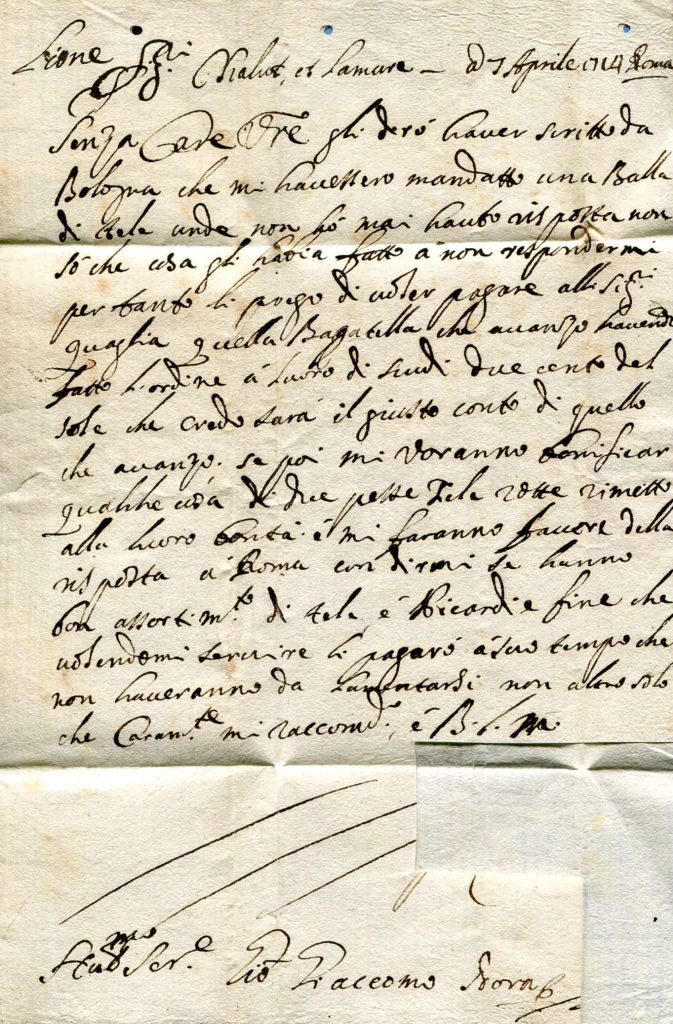 Lione Sig.ri Chalut, et Lamure – ad 7 Aprile 1714 Roma
Senza Care Vre gli derò haver scritto da
Bologna che mi havessero mandatto una Balla
di tele unde non hò mai hauto risposta non
sò che cosa gli habia fatto á non respondermi
per tanto li prego di voler pagare alli Sig.ri
Quaglia quella Bagatella che avanzo havendo
fatto l'ordine á luoro di scudi due cento del
sole che credo sarà il giusto conto di quello
che avanzo. se poi mi voranno bonificar
qualche cosa di due pesse Tele rotte rimetto
alla luoro bontà. é mi faranno favore della
risposta á Roma con dirmi se hanno
bon assortim.to di tele, é Picardie fine che
volendomi servire li pagaró á suo tempo che
non haveranno da lamentarsi non altro solo
che Caram.te mi raccomd.o, é B. l. m.
Hub.mo Ser.e Gio Giaccomo